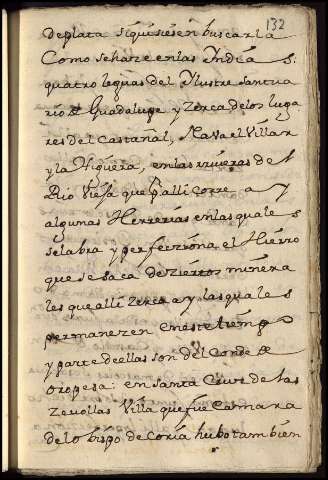 132
de plata siquisiesen buscarla
Como sehaze enlas Indias:
quatro leguas del Ilustre santua
rio de Guadalupe y zerca delos luga
res del Castañal, Nava el Villar
y la Higuera, en las riueras del
Rio Viejas que Palli corre ay
algunas Herrerias enlas quales
se labra y perfecziona el Hierro
que se saca de ziertos minera
les que alli zerca ay las quales
permanezen eneste tiempo
y parte de ellas son del Conde de
oropesa: en santa Cruz de las
Zeuollas Villa que fue Camara
del obispo de Coria hubo tambien